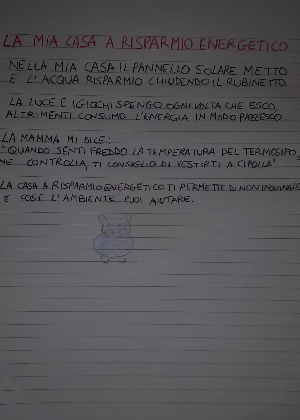 LA MIA CASA A RISPARMIO ENERGETICO
NELLA MIA CASA IL PANNELLO SOLARE METTO
E L'ACQUA RISPARMIO CHIUDENDO IL RUBINETTO.
LA LUCE E I GIOCHI SPENGO OGNI VOLTA CHE ESCO,
ALTRIMENTI CONSUMO L'ENERGIA IN MODO PAZZESCO.
LA MAMMA MI DICE:
"QUANDO SENTI FREDDO LA TEMPERATURA DEL TERMOSIFO=
NE CONTROLLA, TI CONSIGLIO DI VESTIRTI A CIPOLLA".
LA CASA A RISPARMIO ENERGETICO TI PERMETTE DI NON INQUINARE
E COSÌ L'AMBIENTE PUOI AIUTARE.